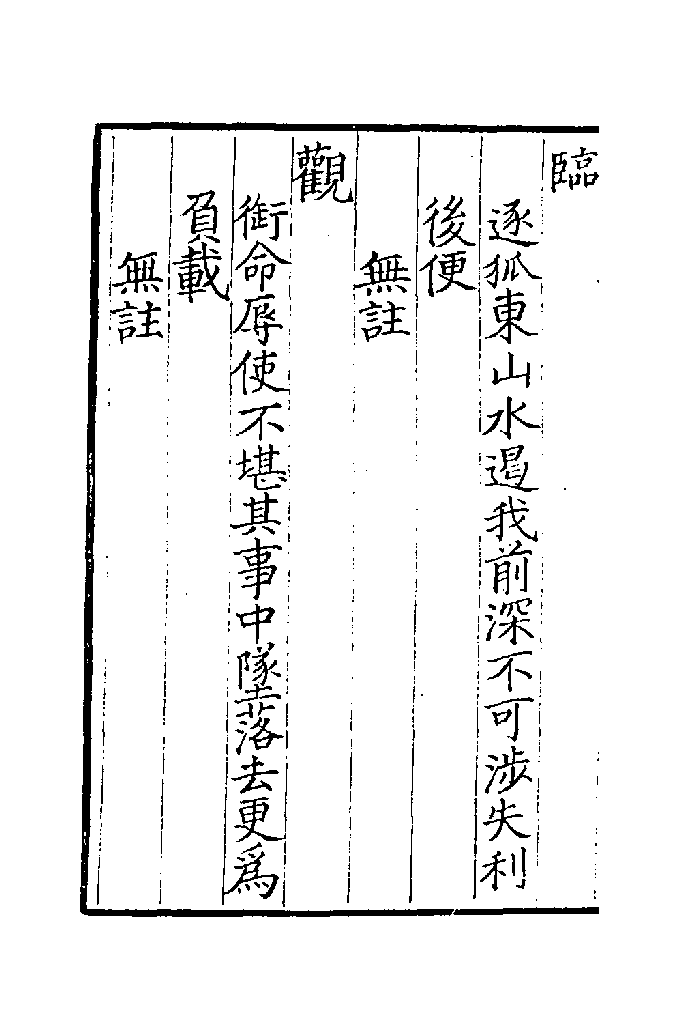 臨
逐狐東山水遏我前深不可涉失利
後便
無註
觀
銜命辱使不堪其事中墜落去更爲
負載
無註